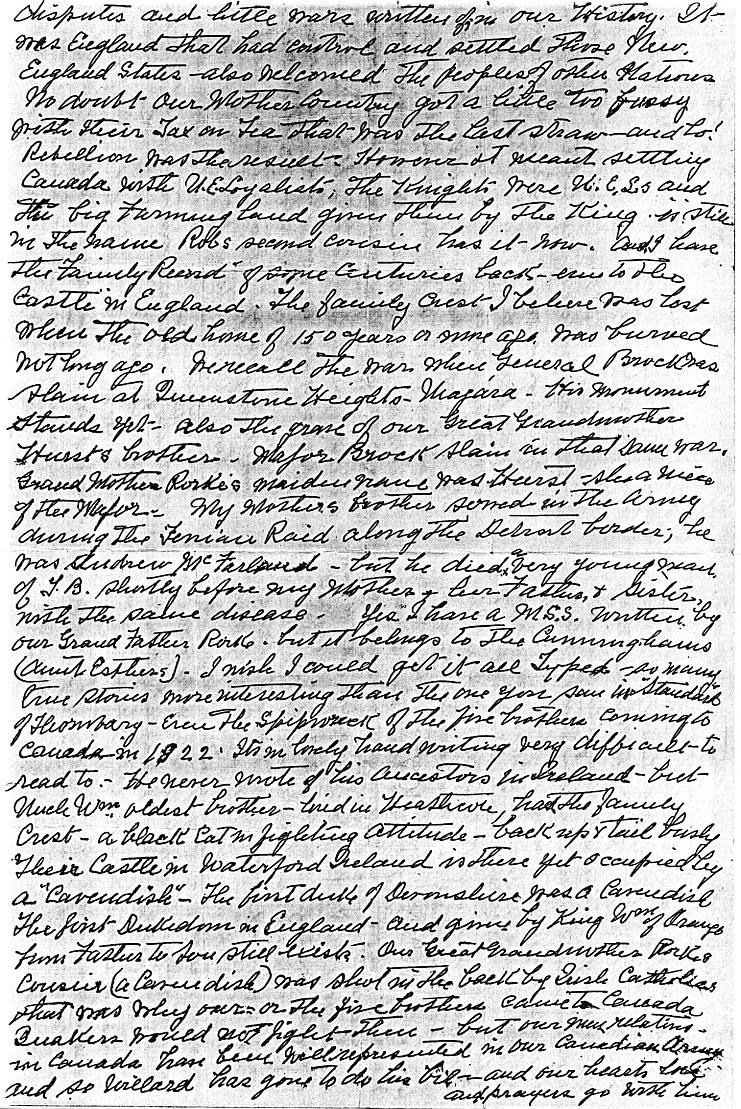 disputes and little wars written of in our History. It
was England that had control and settled those New
England States - also welcomed the Peoples of other Nations
No doubt our Mother Country got a little too fussy
with their Tax on Tea that was the last straw - and lo!
Rebellion was the result - However it meant settling
Canada with U.E. Loyalists, The Knights were U.E.Ls and
the big Farming land given them by the King is still
in the name Robs second cousin has it now. And I have
the Family Record of some centuries back - even to the
Castle in England. The family Crest I believe was lost
when the old home of 150 years or more ago was burned
not long ago. We recall the war when General Brock was
slain at Queenstone Heights - Niagara - His monument
stands yet - also the grave of our Great Grandmother
Hursts brother - Major Brock slain in that same war.
Grand Mother Rorkes maiden name was Hurst - she a niece
of the Major - My Mothers brother served in the Army
during the Fenian Raid along the Detroit border; he
was Andrew McFarland - but he died a very young man
of T.B. shortly before my Mother & her Father & Sister,
with the same disease. Yes I have a M.S.S. written by
our Grand Father Rorke - but it belongs to the Cunninghams
(Aunt Esthers). I wish I could get it all Typed - so many
true stories more interesting than the one you saw in "Standard"
of Thornbury - Even the Shipwreck of the five brothers coming to
Canada in 1822. Its in lovely handwriting very difficult to
read to. - He never wrote of his ancestors in Ireland - but
Uncle Wm oldest brother - lived in Heathcote, had the family
Crest - a black Cat in fighting attitude - back up & tail bushy
Their Castle in Waterford Ireland is there yet occupied by
a "Cavendish" - The first duke of Devonshire was a Cavendish
The first Dukedom in England - and given by King Wm of Orange
from Father to Son still exists. Our Great Grandmother Rorkes
Cousin (a Cavendish) was shot in the back by Irish Catholics
that was why our - or the five brothers came to Canada
Quakers would not fight then - but our men relatives
in Canada have been well represented in our Canadian Army
and so Willard has gone to do his bit - and our hearts love
and prayers go with him